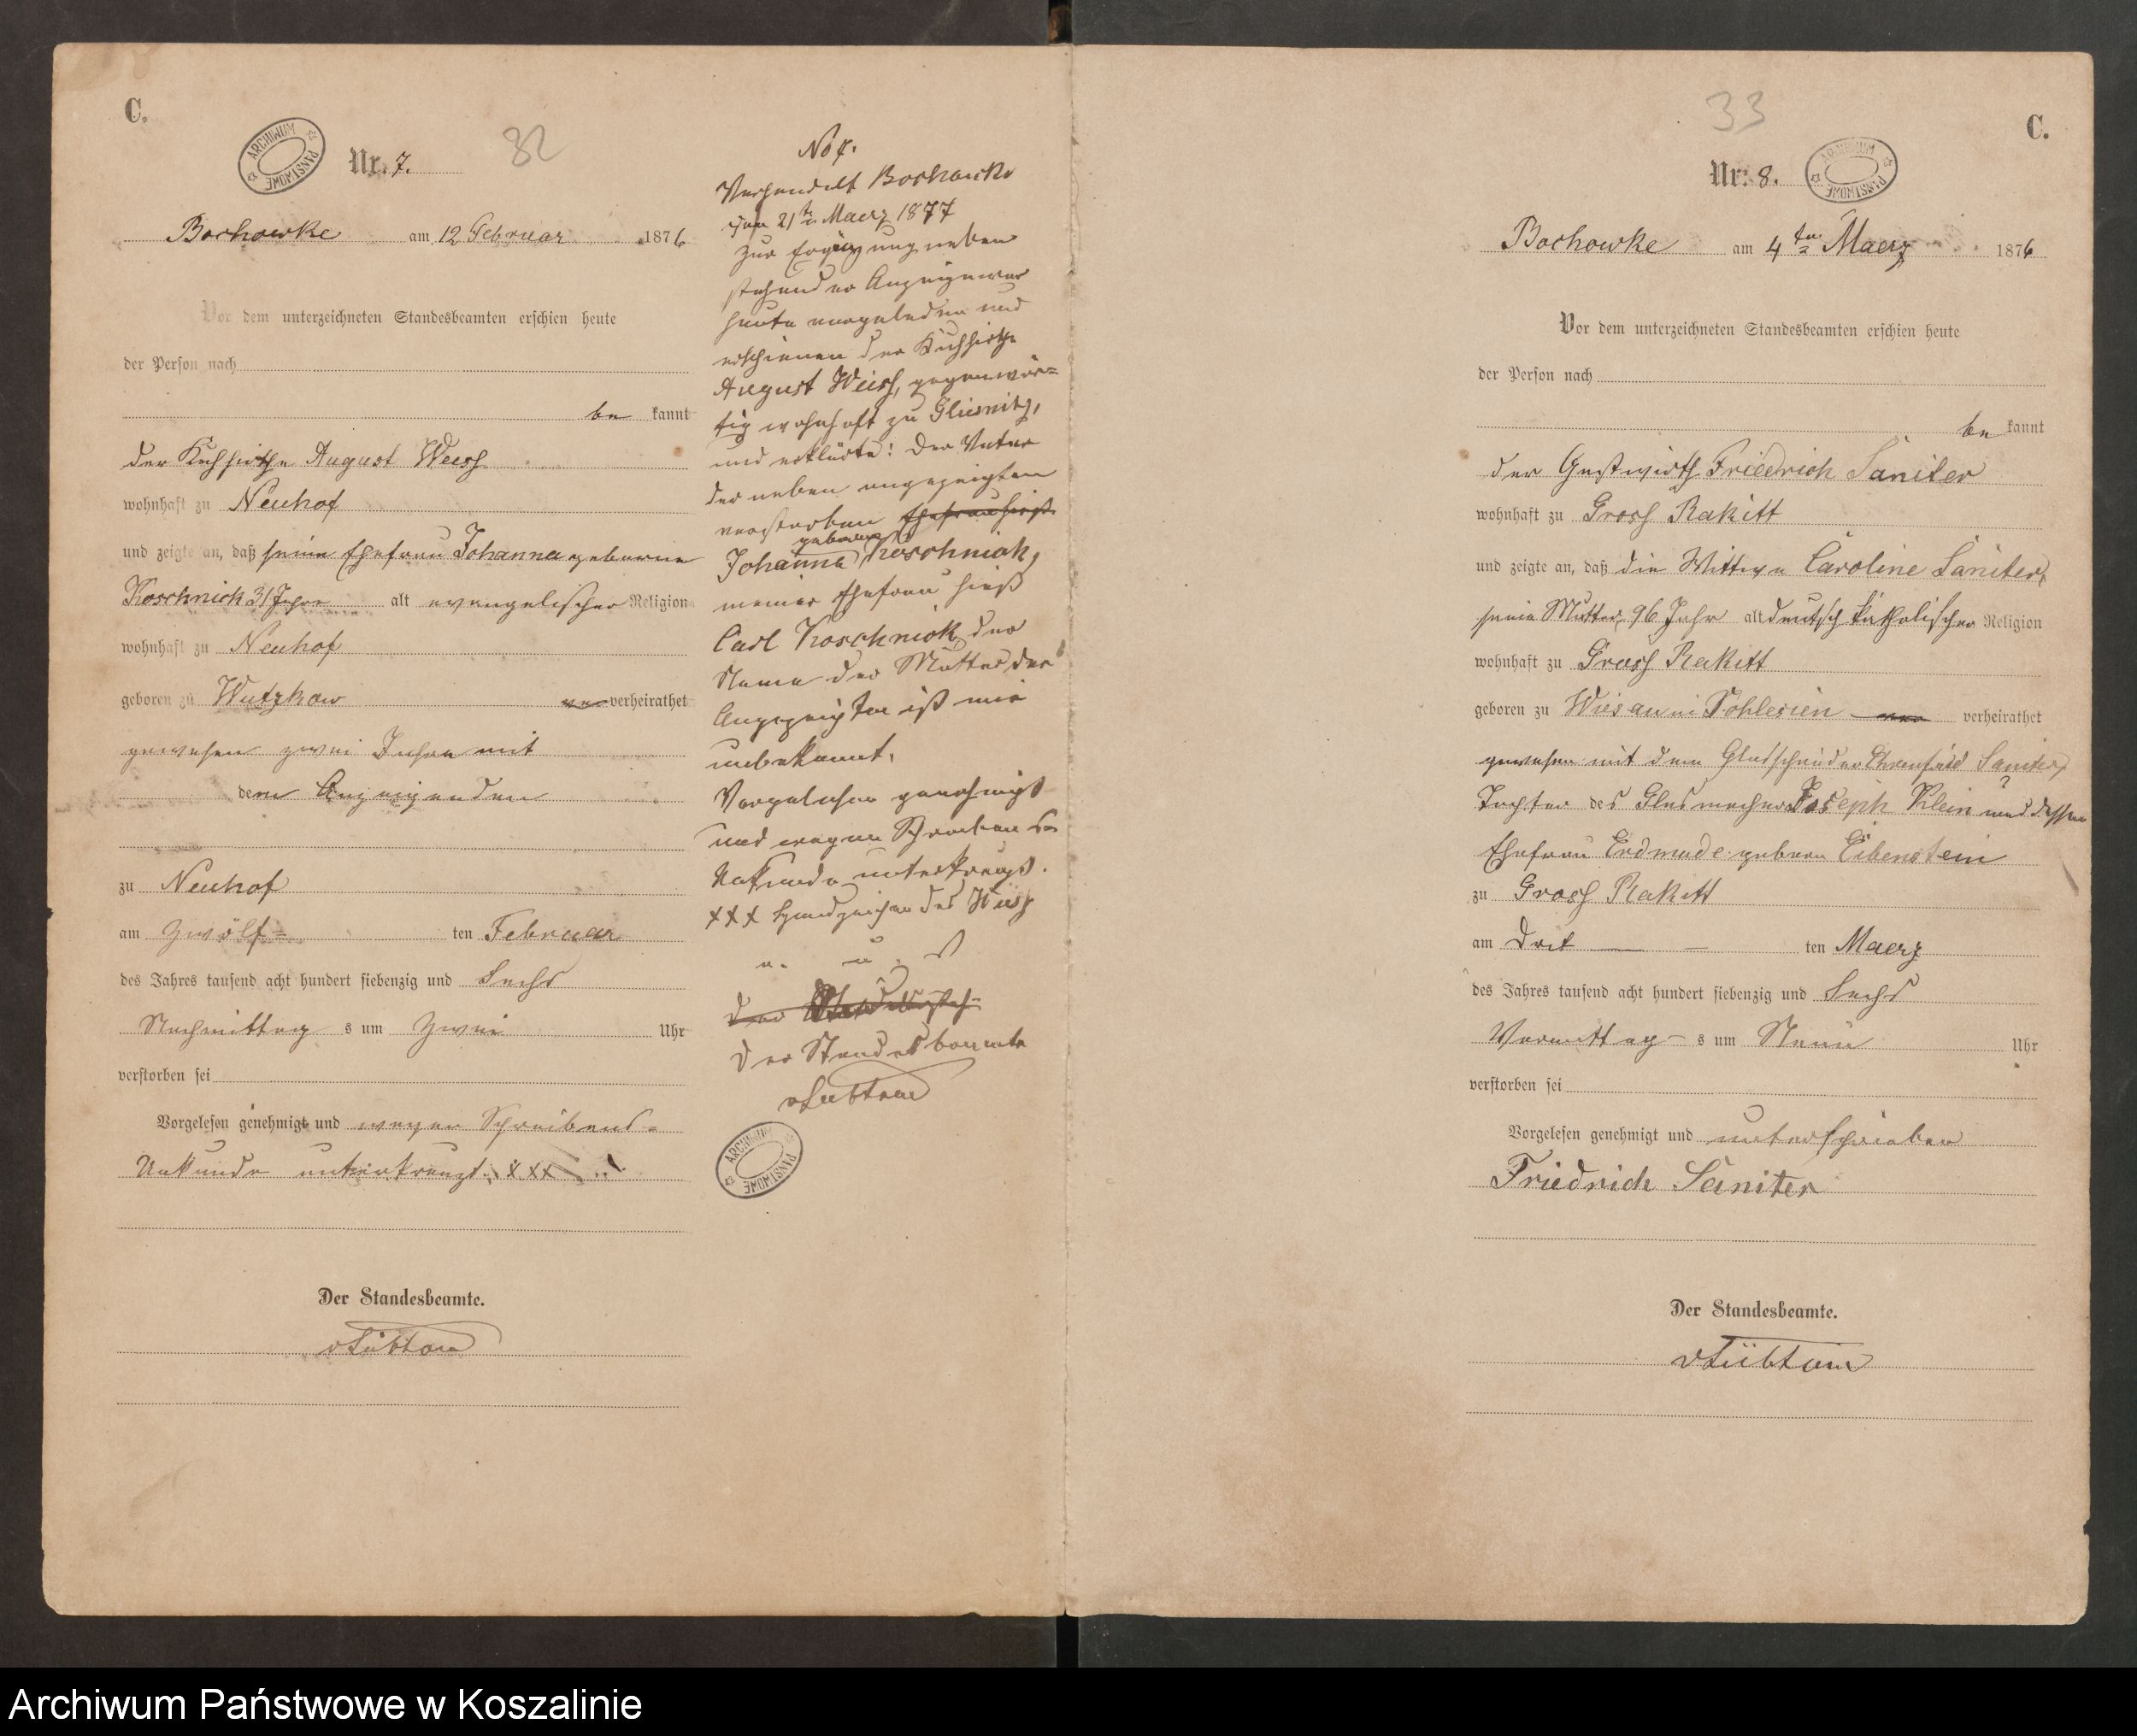 C.
ARCHIWUM PAŃSTWOWE
Nr. 7.
82
Bochowke am 12 Februar 1876
Vor dem unterzeichneten Standesbeamten erschien heute
der Person nach
be kannt
der Kuhhirthe August Weiss
wohnhaft zu Neuhof
und zeigte an, daß seine Ehefrau Johanna geborene
Koschnick 31 Jahre alt evangelischer Religion
wohnhaft zu Neuhof
geboren zu Wutzkow verheirathet
gewesen zwei Jahre mit
dem Anzeigenden
zu Neuhof
am Zwölf= ten Februar
des Jahres tausend acht hundert siebenzig und Sechs
Nachmittag s um Zwei Uhr
verstorben sei
Vorgelesen genehmigt und wegen Schreibens=
Unkunde unterkreuzt. xxx
Der Standesbeamte.
No 7.
Verhandelt Bochowke
den 21ten Maerz 1877
zur Ergänzung neben
stehender Anzeige war
heute vorgeladen und
erschienen der Kuhhirthe
August Weiss, gegenwär=
tig wohnhaft zu Gliesnitz,
und erklärte: Der Vater
der neben angezeigten
verstorben Ehefrau hieß
geboren
Johanna Koschnick,
meiner Ehefrau hieß
Carl Koschnick, der
Name der Mutter der
Angezeigten ist mir
unbekannt.
Vorgelesen genehmigt
und wegen Schreibens
Unkunde unterkreuzt.
xxx Handzeichen des Weiss
Der Standesbeamte
ARCHIWUM PAŃSTWOWE
33
C.
Nr. 8.
ARCHIWUM PAŃSTWOWE
Bochowke am 4ten Maerz 1876
Vor dem unterzeichneten Standesbeamten erschien heute
der Person nach
be kannt
der Gastwirth Friedrich Säniter
wohnhaft zu Gross Rakitt
und zeigte an, daß die Wittwe Caroline Säniter,
seine Mutter, 96 Jahr alt deutsch katholischer Religion
wohnhaft zu Gross Rakitt
geboren zu Wiesau in Schlesien verheirathet
gewesen mit dem Glasschneider Ehrenfried Säniter,
Tochter des Glasmacher Joseph Klein und dessen
Ehefrau geboren Eibenstein
zu Gross Rakitt
am Drit ten Maerz
des Jahres tausend acht hundert siebenzig und Sechs
Vormittag s um Neun Uhr
verstorben sei
Vorgelesen genehmigt und unterschrieben
Friedrich Säniter
Der Standesbeamte.
Archiwum Państwowe w Koszalinie